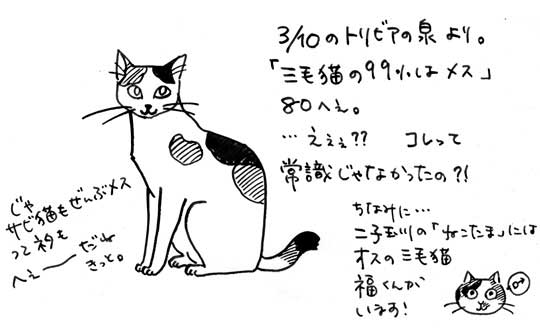 3/10のトリビアの泉より。
「三毛猫の99%はメス」
80へぇ。
…えぇぇ?? コレって
常識じゃなかったの?!
じゃ
サビ猫もぜんぶメス
ってネタも
へぇーーだね
きっと。
ちなみに…
二子玉川の「ねこたま」には
オスの三毛猫
福くんが
います!